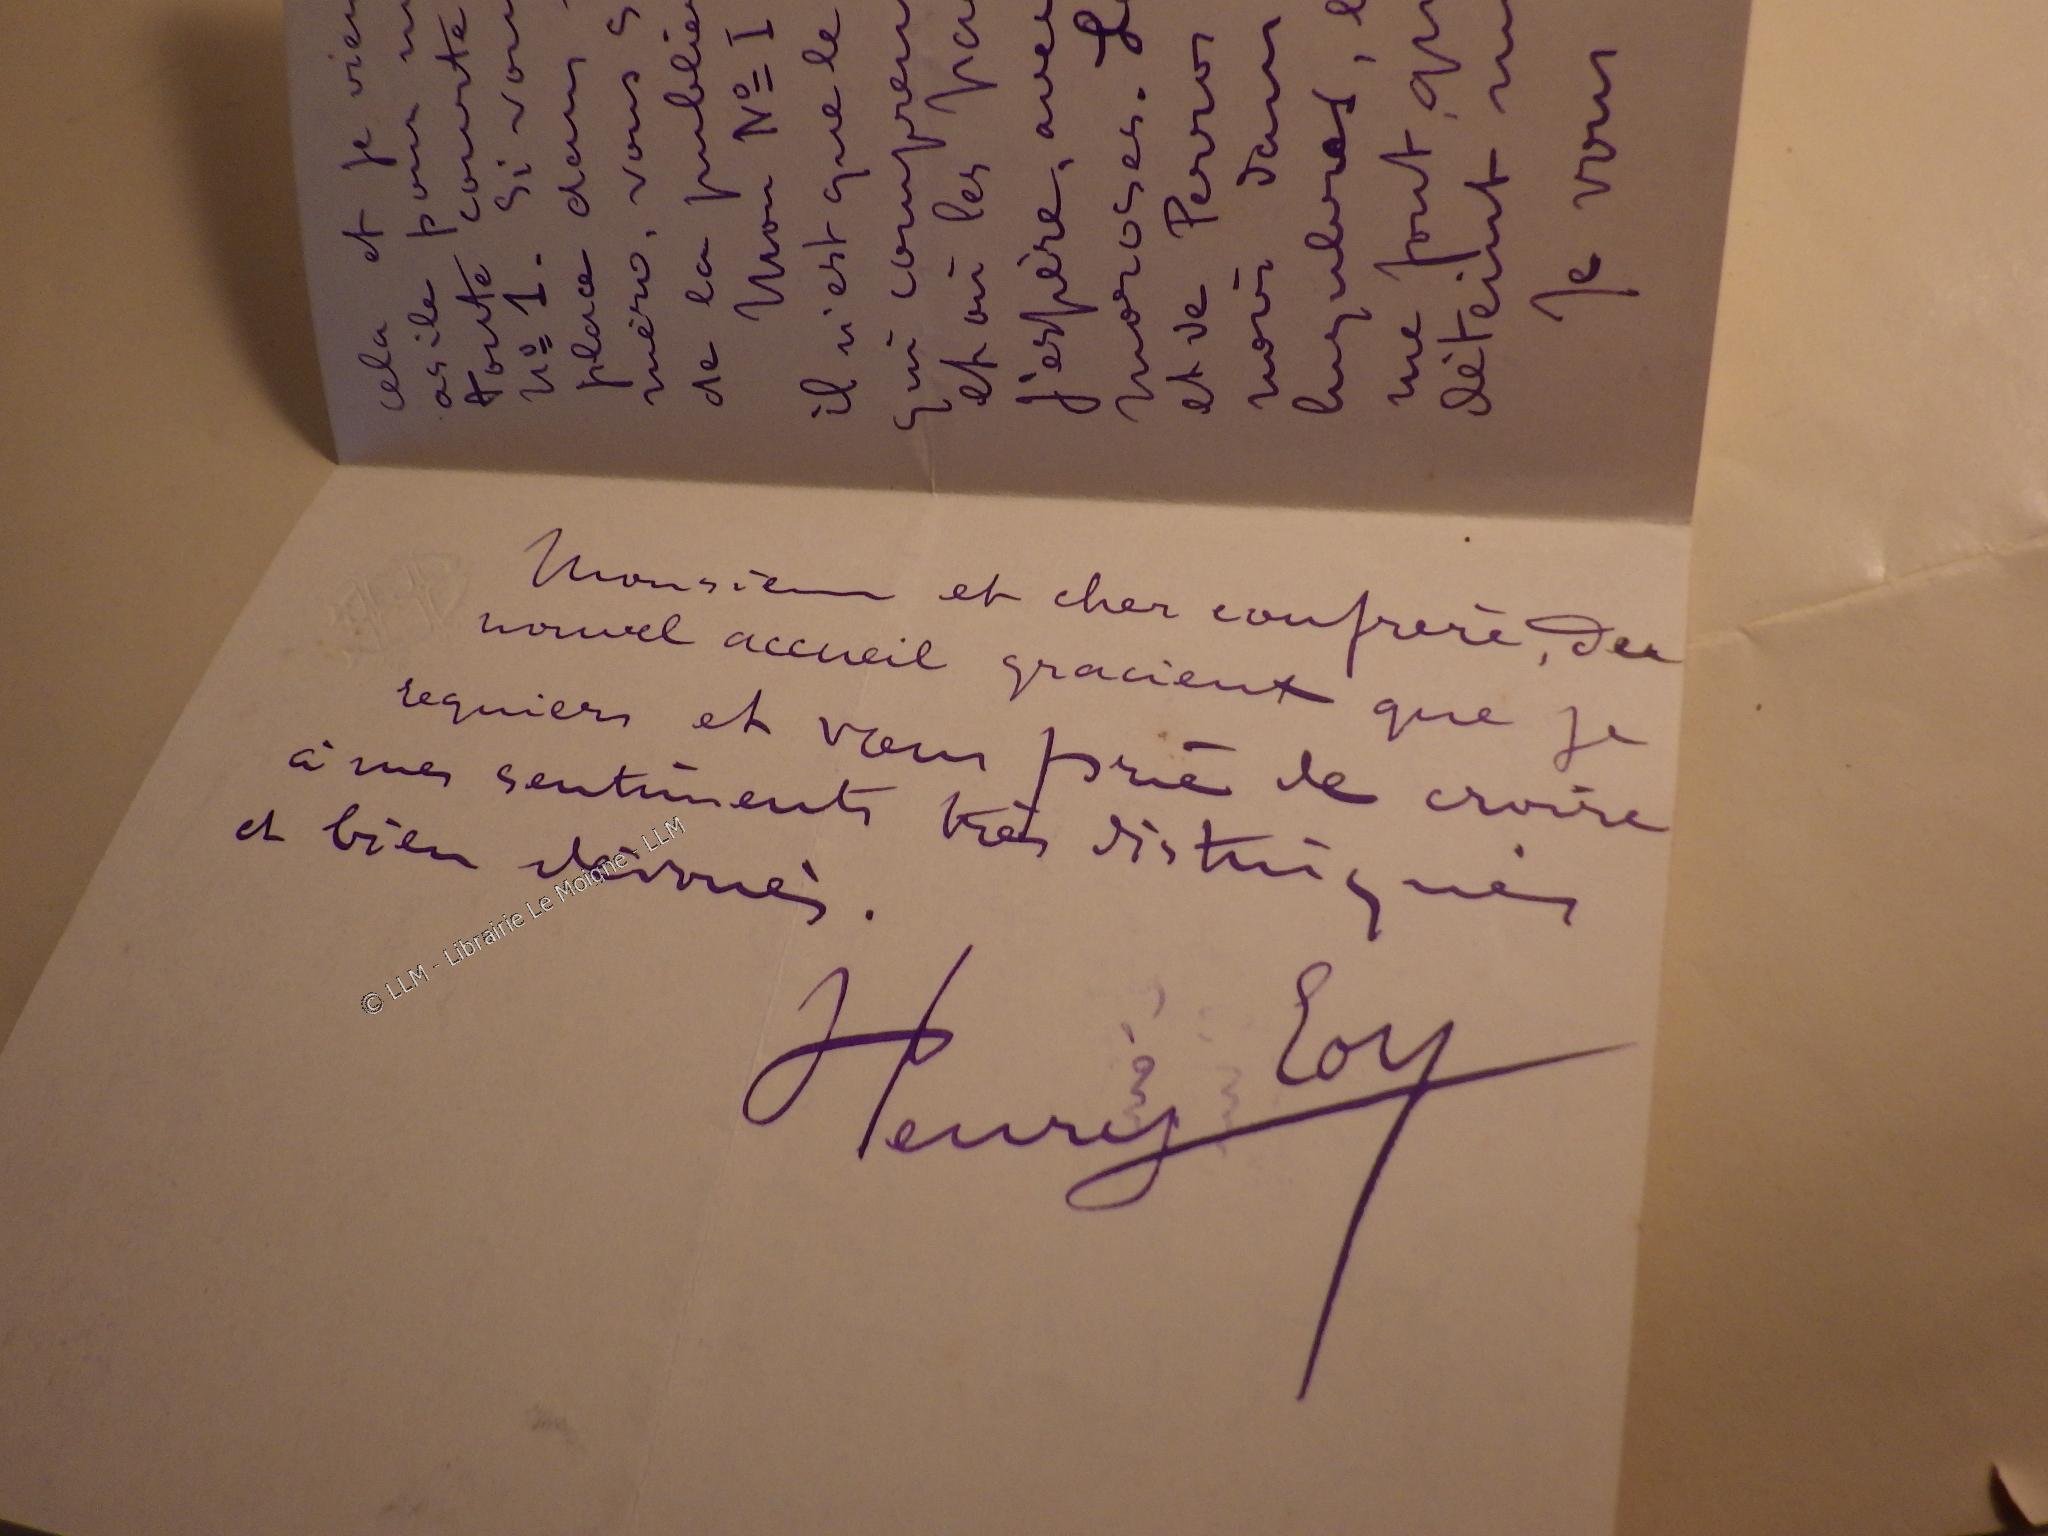 cela et je vien
asile pour
toute courte
N° 1. Si vous
place dans
méro, vous
de la publie
Mon N° 1
il n'est que le
qui compren
et où les pa
j'espère, avec
moroses. Le
et de Perros
noir dans
lugubres, 
me font, qu
déteint
Je vous
Monsieur et cher confrère, du
nouvel accueil gracieux que je
requiers et vous prie de croire
à mes sentiments très distingués
et bien dévoués.
Henry Eoy
© LLM - Librairie Le Moigne - LLM